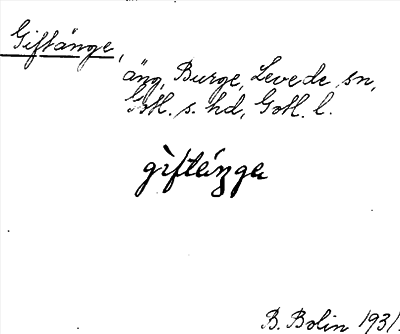 Giftänge,
äng, Burge, Levede sn,
Gotl. s. hd, Gotl. l.
giftánga
B. Bolin 1931.